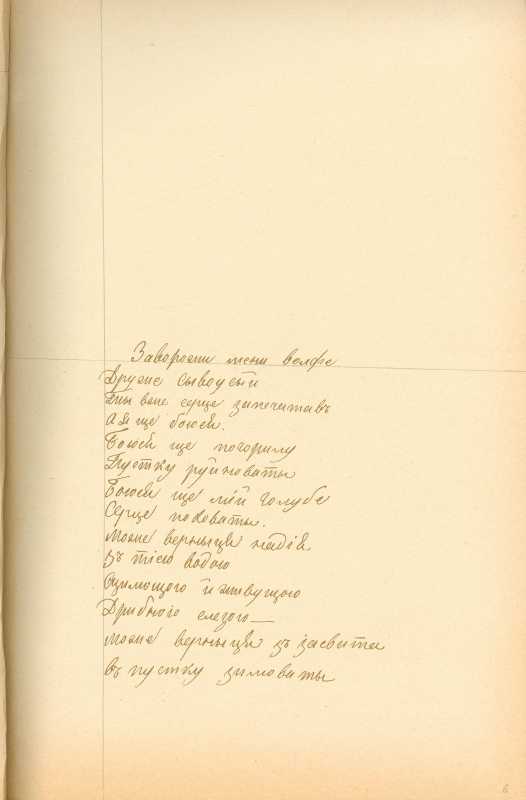 Заворожи мени волфе
Друже сывоусый
Ты вже серце запечатавъ
А Я ще боюся.
Боюся ще погорилу
Пустку руйноваты
Боюся ще мій голубе
Серце поховаты.
Може вернытця надія
Зъ тією водою
Сцилющою й живущою
Дрибною слезою —
Може вернытця зъ засвита
Въ пустку зимоваты
6